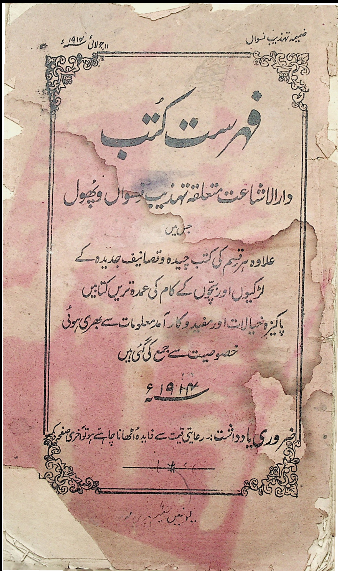 ضمیمہ تہذیب نسواں
۱۱ جولائی ۱۹۱۴ء
فہرست کتب
دارالاشاعت متعلقہ تہذیب نسواں و پھول
جس میں
علاوہ ہر قسم کی کتب چیدہ و تصانیف جدیدہ کے
لڑکیوں اور بچوں کے کام کی عمدہ ترین کتابیں
پاکیزہ خیالات اور مفید و کارآمد معلومات سے بھری ہوئی
خصوصیت سے جمع کی گئی ہیں
۱۹۱۴ء
ضروری یادداشت:۔ رعایتی قیمت سے فایدہ اٹھانا چاہتے ہو تو آخری صفحہ